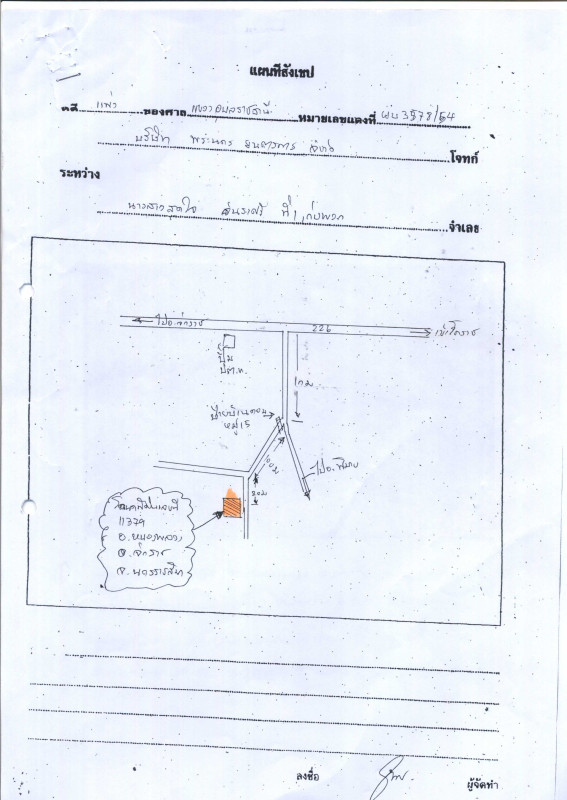 แผนที่สังเขป
คดี แพ่ง ของศาล แขวงอุบลราชธานี หมายเลขแดงที่ ผบ 3578/54
บริษัท พระนคร ยนตรการ จำกัด โจทก์
ระหว่าง
นางสาวสุดใจ ที่ 1 กับพวก จำเลย
ไปอ.จักราช
226
เข้าโคราช
ปั๊ม
ปตท.
1 กม
หมู่ 15
ไปอ.พิมาย
20 ม
โฉนดที่ดินเลขที่
11379
ต.หนองพลวง
อ.จักราช
จ.นครราชสีมา
ลงชื่อ
ผู้จัดทำ